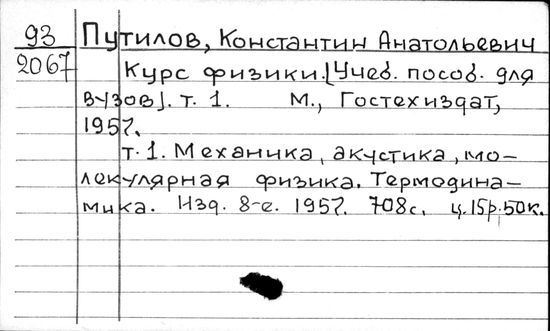 93 Путилов, Константин Анатольевич
2067 Курс физики. [Учеб. пособ. для
вузов]. т. 1. М., Гостехиздат,
1957.
т. 1. Механика, акустика, мо-
лекулярная физика. Термодина-
мика. Изд. 8-е. 1957. 708 с. ц. 15 р. 50 к.